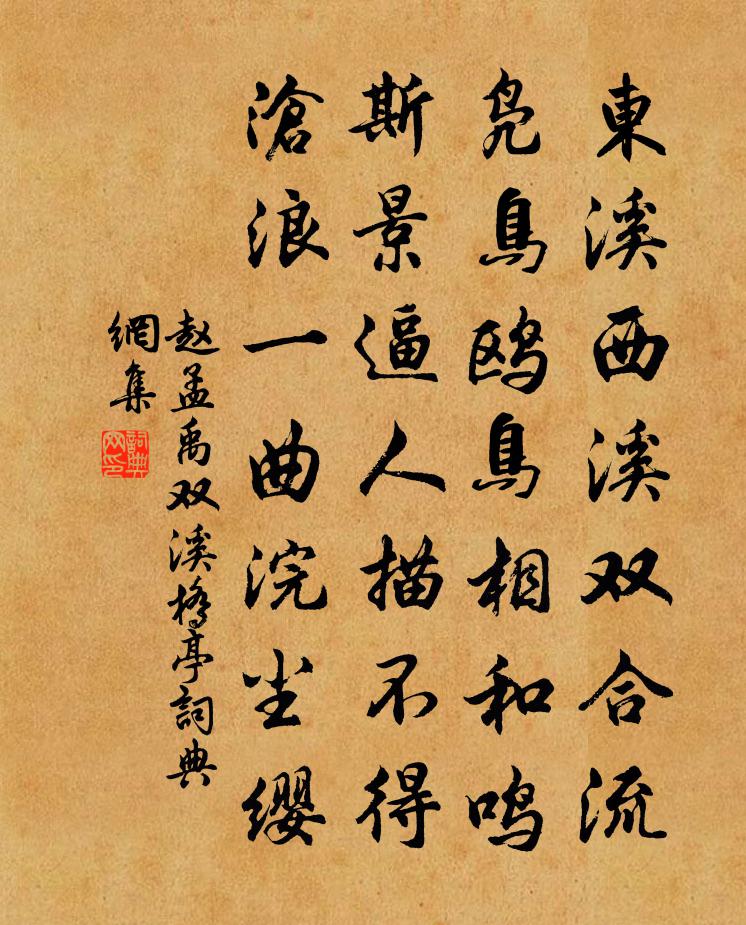 東溪西溪双合流
凫鳥鸥鳥相和鸣
斯景逼人描不得
滄浪一曲浣尘缨
赵孟禹双溪橋亭詞典
網集
詞典網印